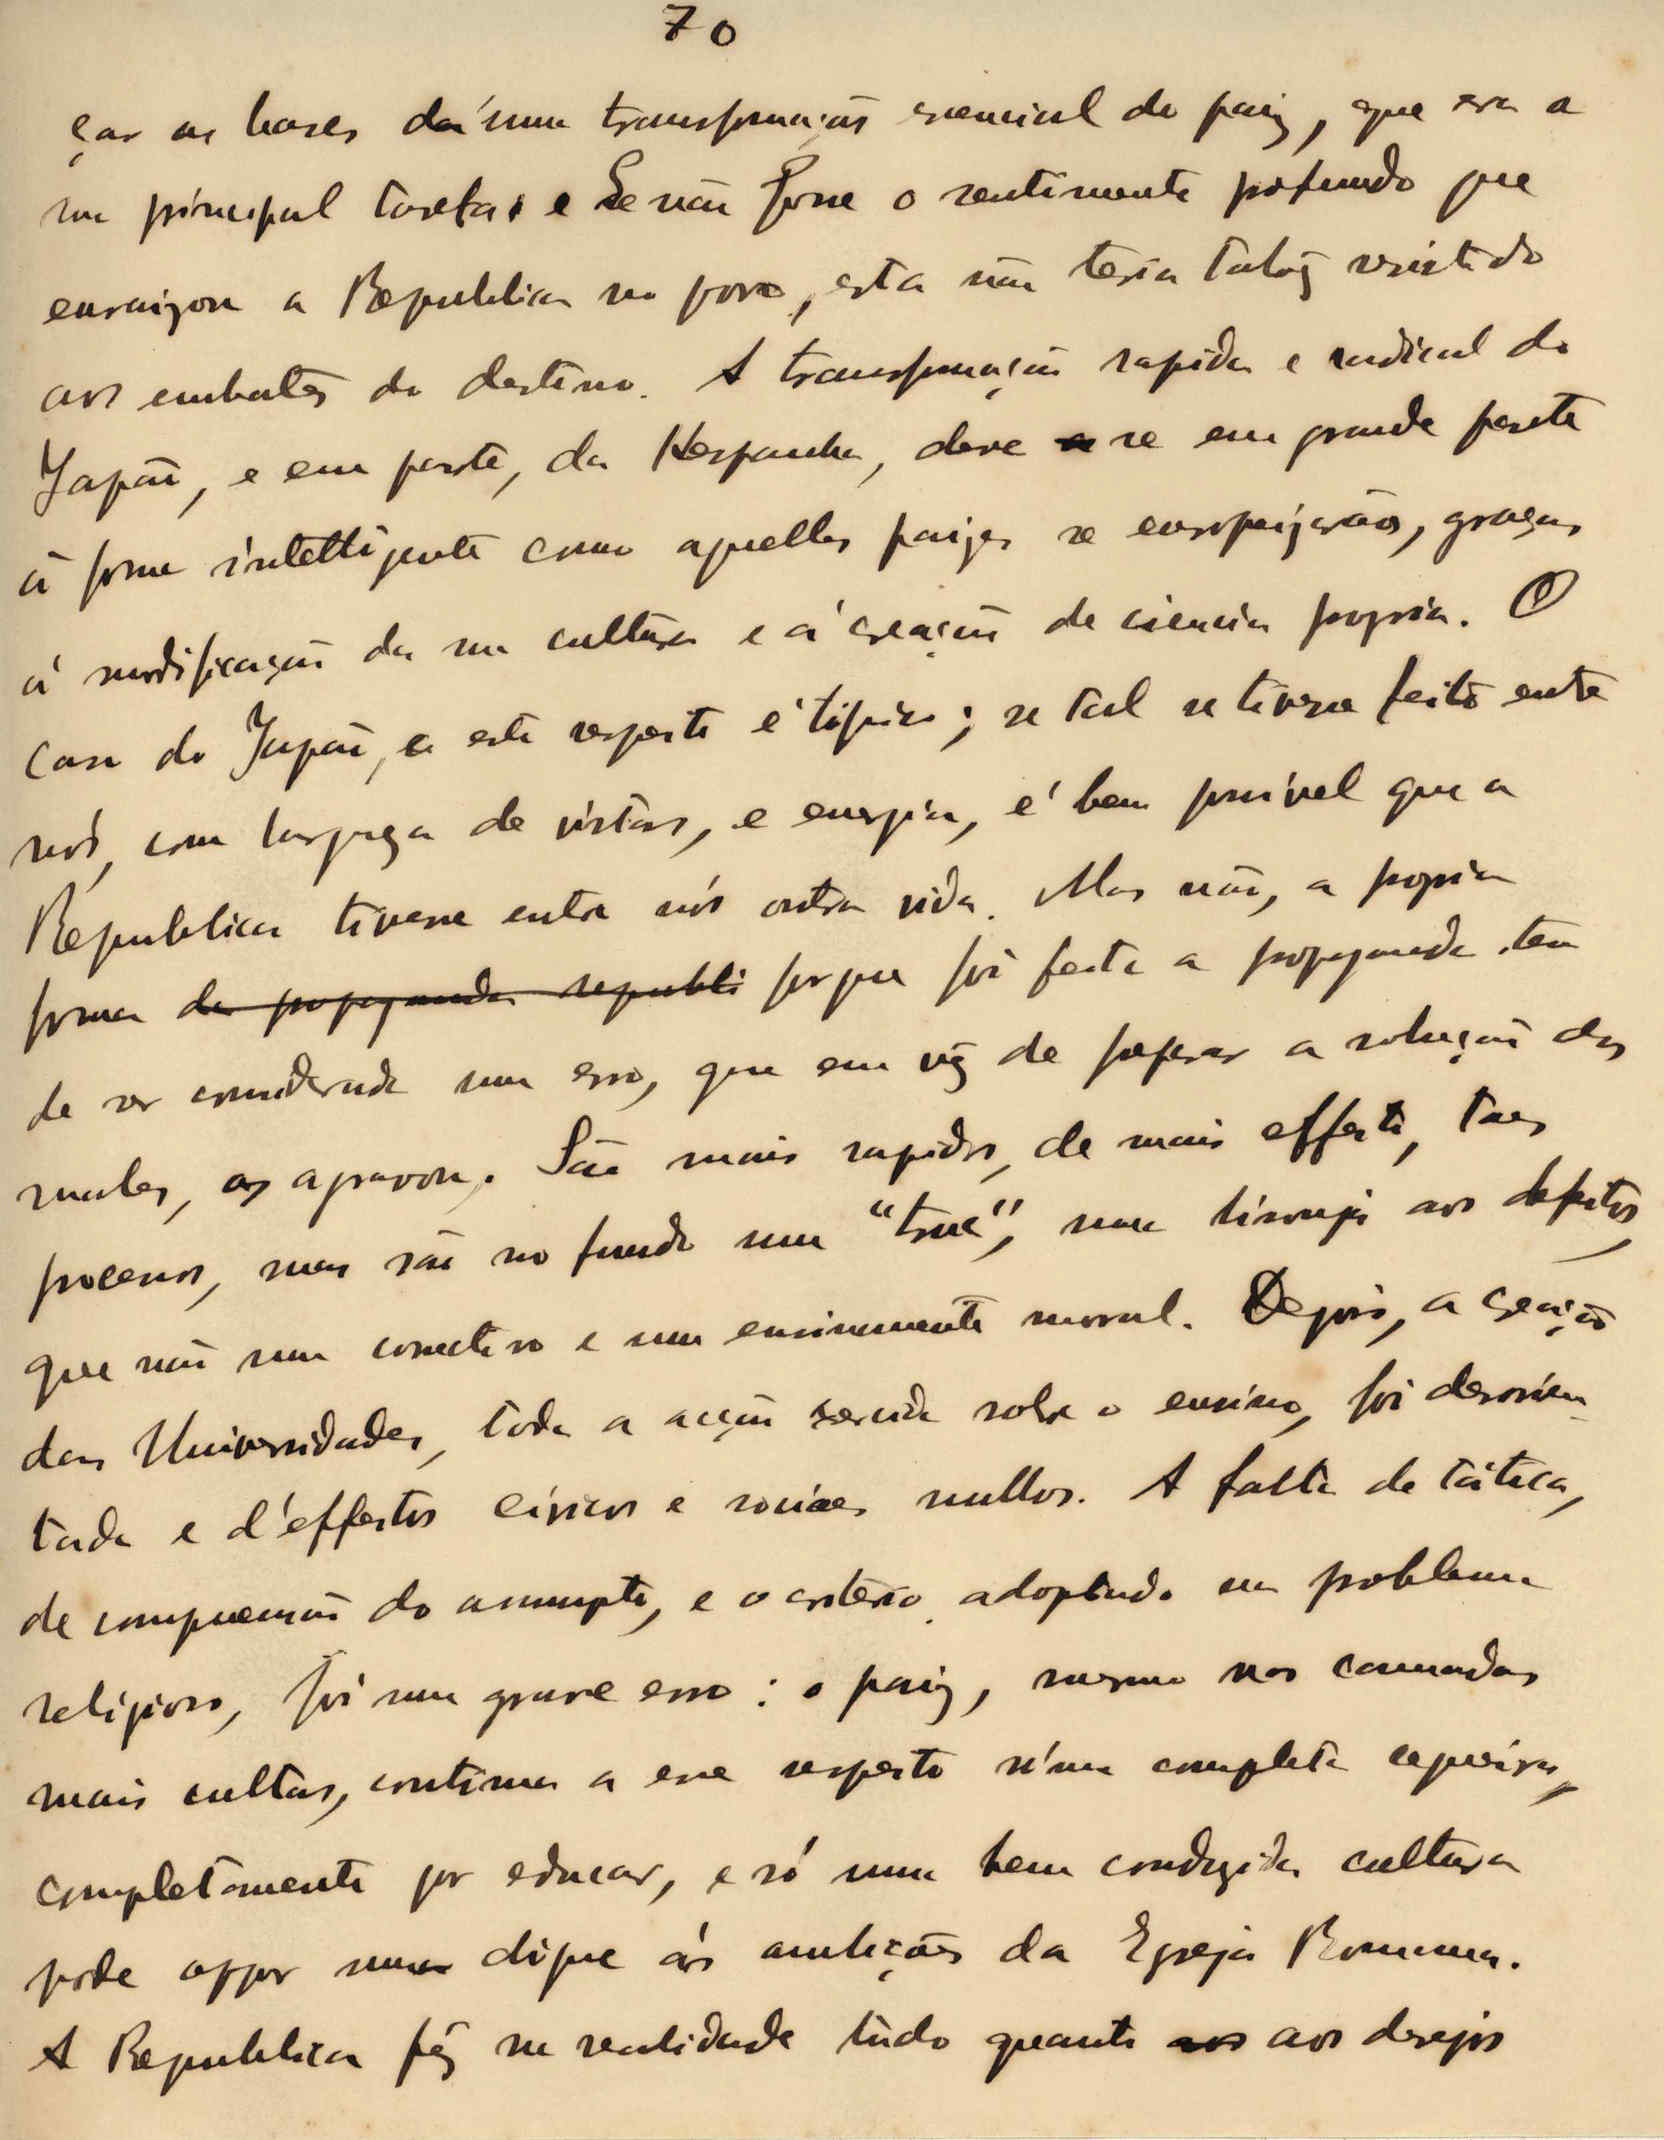 70
çar as bases d'uma transformação essencial do paiz, que era a
sua principal tarefa e se não fosse o sentimento profundo que
enraizou a Republica no povo, esta não teria talvez resistido
aos embates do destino. A transformação rapida e radical do
Japão, e em parte, da Hespanha, deve se em grande parte
á forma intelligente como aquelles paizes se europeizarão, graças
á modificação da sua cultura e á creação de ciencia propria. O
caso do Japão, a este respeito é tipico; se tal se tivesse feito entre
nós, com largueza de vistas, e energia, é bem possivel que a
Republica tivesse entre nós outra vida. Mas não, a propria
forma da propaganda republi porque foi feita a propaganda tem
de ser considerada um erro, que em vez de preparar a solução dos
males, os agravou. São mais rapidos, de mais effeito, taes
processos, mas são no fundo um "truc", uma lisonja aos defeitos,
que não um correctivo e um ensinamento moral. Depois, a creação
das Universidades, toda a acção exercida sobre o ensino, foi desorien-
tada e d'effeitos civicos e sociaes nullos. A falta de tática,
de compreensão do assumpto, e o critério adoptado no problema
religioso, foi um grave erro: o paiz, mesmo nas camadas
mais cultas, continua a esse respeito n'uma completa cegueira,
completamente por educar, e só uma bem conduzida cultura
pode oppor um dique ás ambições da Egreja Romana.
A Republica fez na realidade tudo quanto aos aos desejos